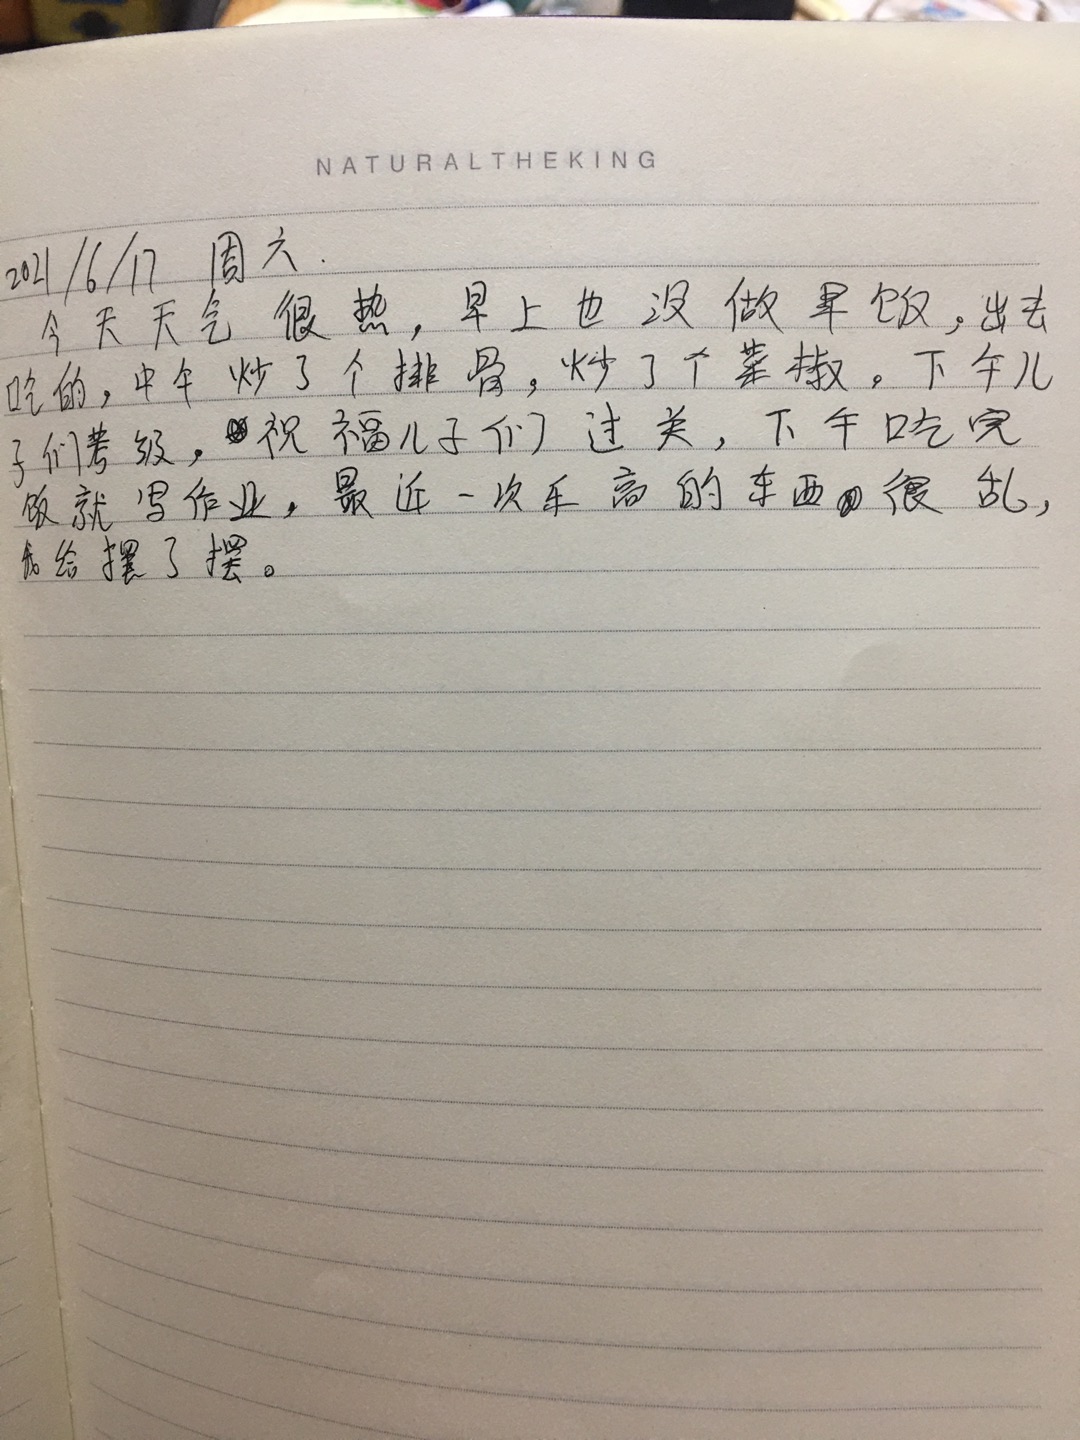 NATURALTHEKING
2021/6/17 周六.
今天天气很热,早上也没做早饭,出去
吃的,中午炒了个排骨,炒了个菜椒。下午儿
子们考级,祝福儿子们过关,下午吃完
饭就写作业,最近一次车高的东西很乱,
我给摆了摆。